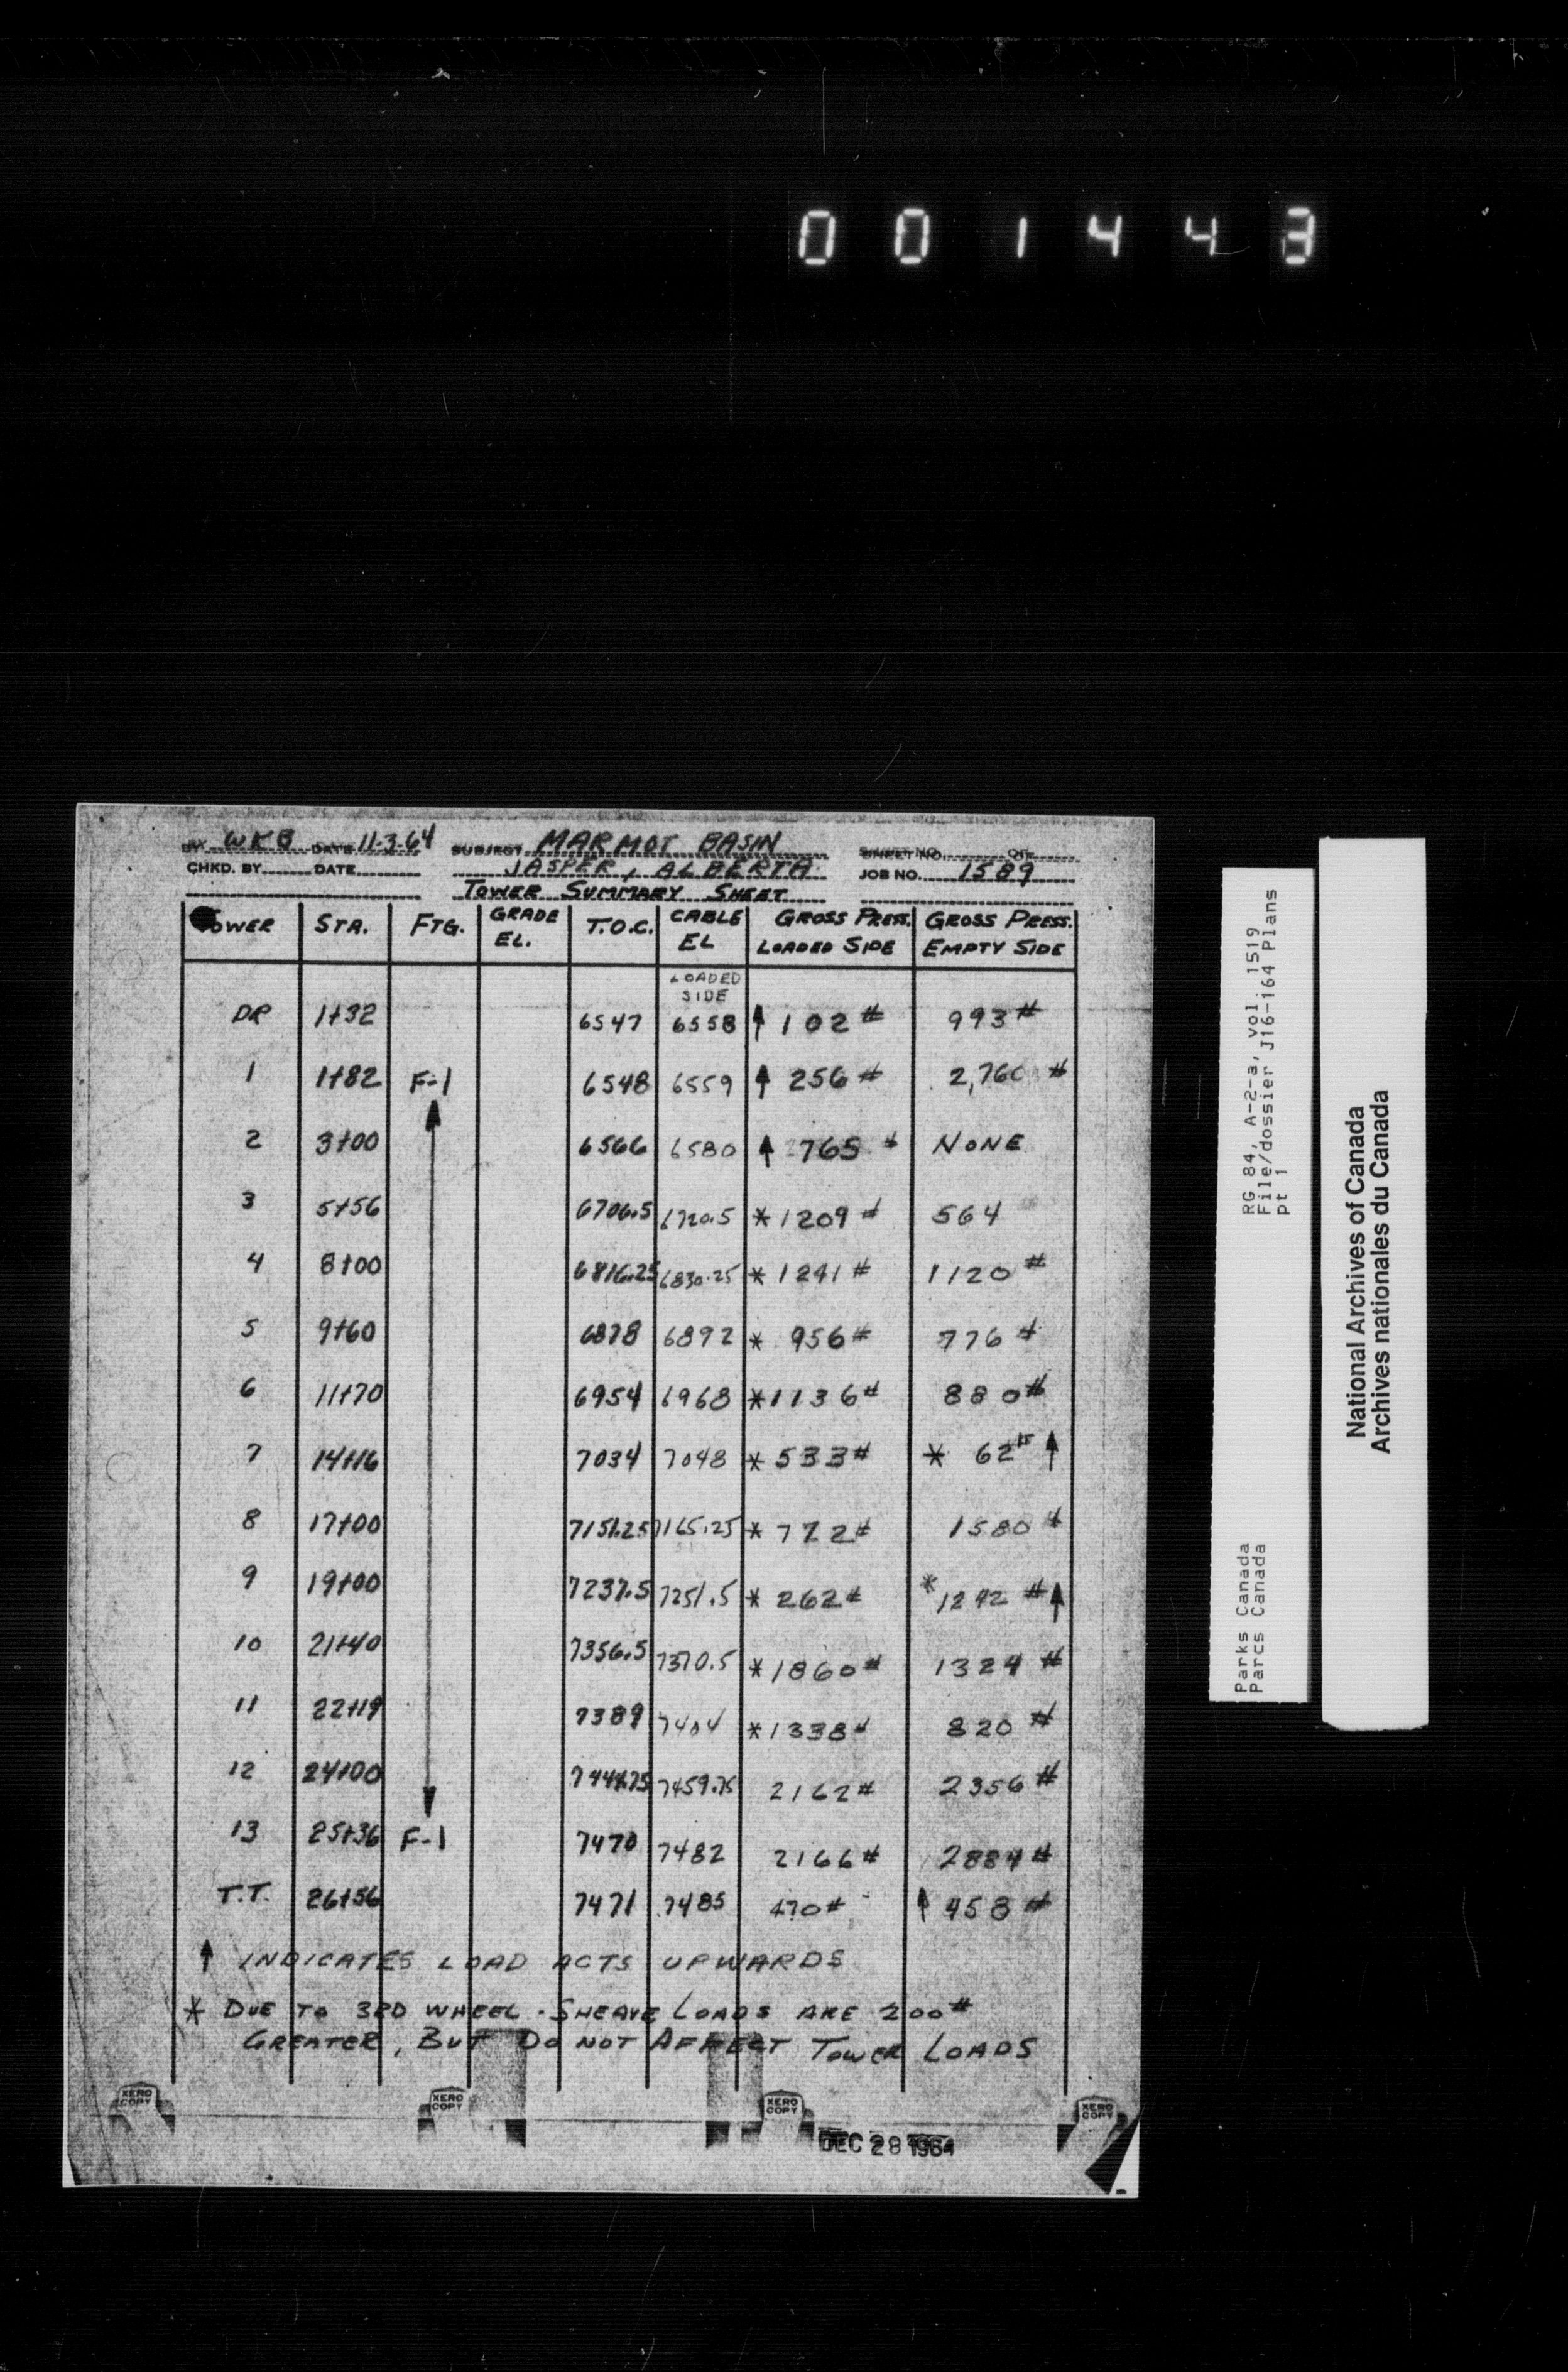 001443
BY WKB DATE 11-3-64 SUBJECT MARMOT BASIN SHEET NO. OF
CHKD. BY DATE JASPER, ALBERTA JOB NO. 1589
TOWER SUMMARY SHEET
TOWER STA. FTG. GRADE EL. T.O.C. CABLE EL GROSS PRESS. LOADED SIDE GROSS PRESS. EMPTY SIDE
LOADED SIDE
DR 1+32 6547 6558 ↑ 102 # 993 #
1 1+82 F-1 6548 6559 ↑ 256 # 2,760 #
2 3+00 6566 6580 ↑ 765 # NONE
3 5+56 6706.5 6720.5 * 1209 # 564
4 8+00 6816.25 6830.25 * 1241 # 1120 #
5 9+60 6878 6892 * 956 # 776 #
6 11+70 6954 6968 * 1136 # 880 #
7 14+16 7034 7048 * 533 # * 62 # ↑
8 17+00 7151.25 7165.25 * 772 # 1580 #
9 19+00 7237.5 7251.5 * 262 # * 1242 # ↑
10 21+40 7356.5 7370.5 * 1860 # 1324 #
11 22+19 7389 7404 * 1338 # 820 #
12 24+00 7444.75 7459.75 2162 # 2356 #
13 25+36 F-1 7470 7482 2166 # 2884 #
T.T. 26+56 7471 7485 470 # ↑ 458 #
↑ INDICATES LOAD ACTS UPWARDS
* DUE TO 3RD WHEEL. SHEAVE LOADS ARE 200 #
GREATER, BUT DO NOT AFFECT TOWER LOADS
XERO COPY XERO COPY XERO COPY XERO COPY
DEC 28 1964
RG 84, A-2-a, vol. 1519
File/dossier J16-164 Plans
pt 1
Parks Canada
Parcs Canada
National Archives of Canada
Archives nationales du Canada